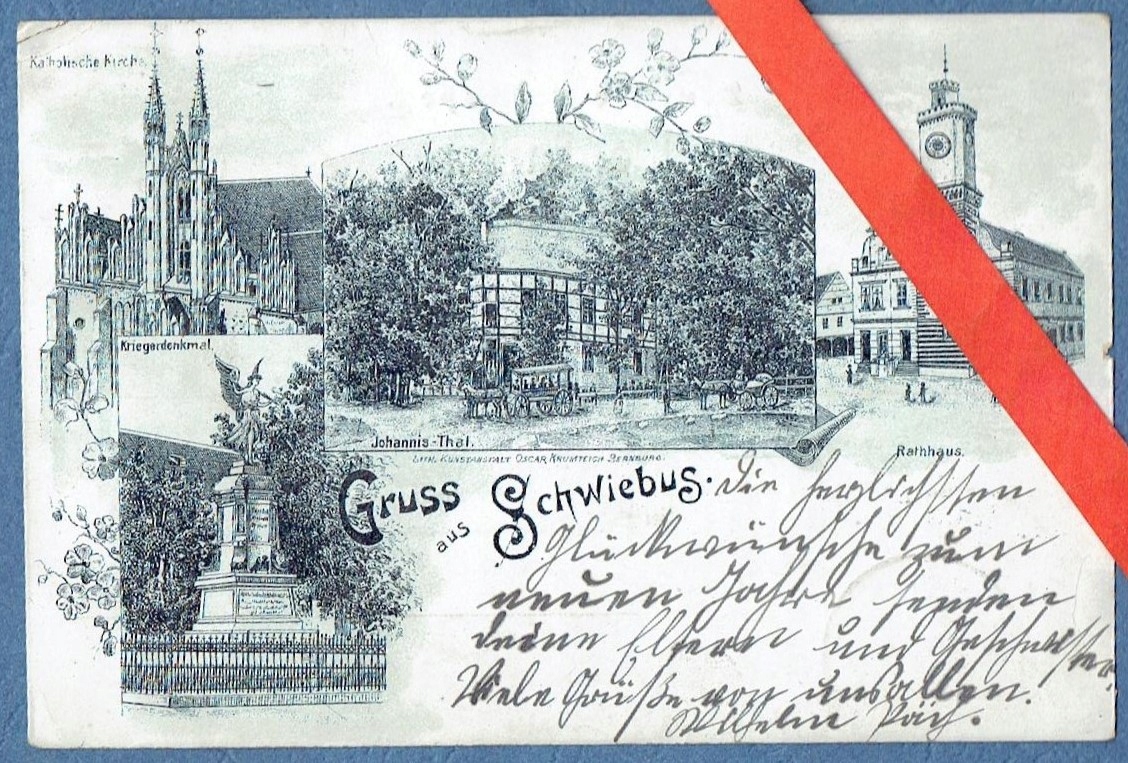 Katholische Kirche.
Kriegerdenkmal.
Johannis-Thal.
LITH. KUNSTANSTALT OSCAR KRUMTEICH BERNBURG.
Rathhaus.
Gruss aus Schwiebus.
Die herzlichsten
Glückwünsche zum
neuen Jahre senden
deine Eltern und Geschwister.
Viele Grüße von uns allen.
Wilhelm